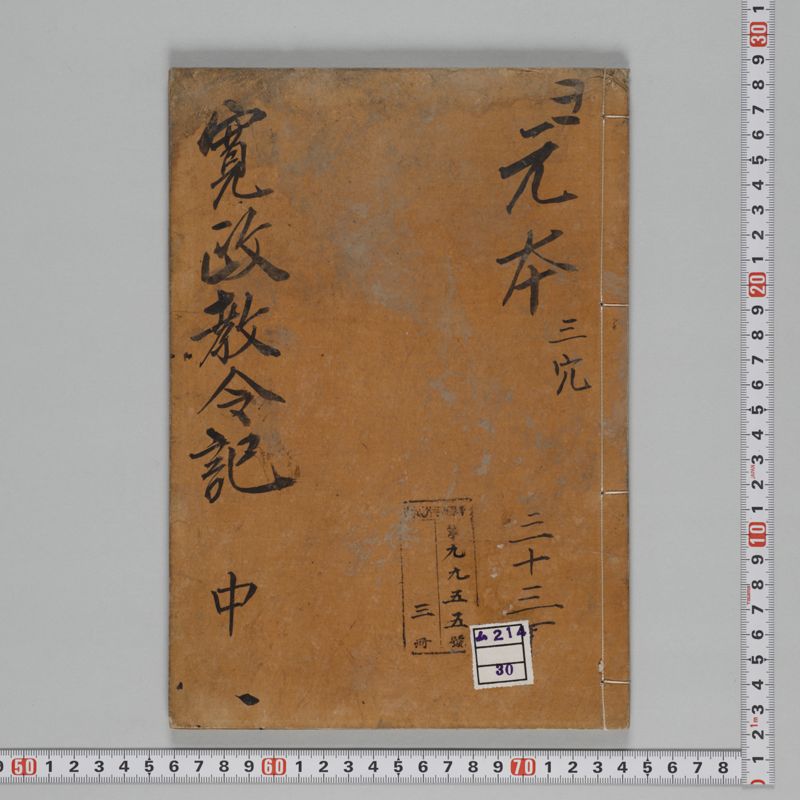 ヨ
元本
三冗
三十三
第九九五五號
三冊
ム214
30
寛政教令記 中